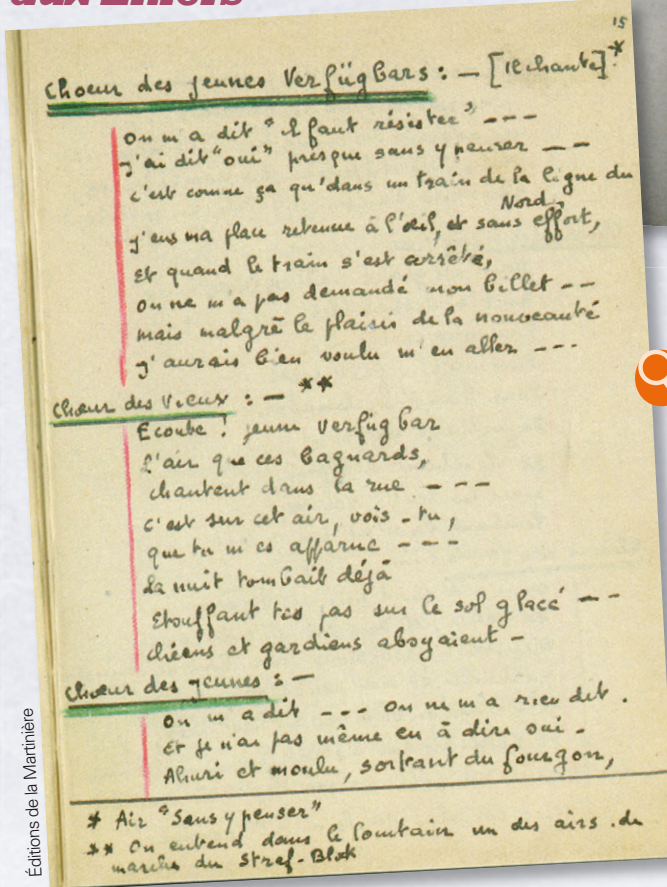 aux Enfers
15
Choeur des jeunes Verfügbars : — [Il chante] *
On m'a dit "il faut résister" ---
j'ai dit "oui" presque sans y penser --
c'est comme ça qu'dans un train de la ligne du
Nord,
j'eus ma place retenue à l'oeil, et sans effort,
Et quand le train s'est arrêté,
on ne m'a pas demandé mon billet --
mais malgré le plaisir de la nouveauté
j'aurais bien voulu m'en aller ---
Choeur des Vieux : — **
Ecoute ! jeune Verfügbar
l'air que ces bagnards,
chantent dans la rue ---
c'est sur cet air, vois-tu,
que tu m'es apparue ---
La nuit tombait déjà
Etouffant tes pas sur le sol glacé --
chiens et gardiens aboyaient -
Choeur des jeunes : —
On m'a dit --- on ne m'a rien dit .
Et je n'ai pas même eu à dire oui -
Ahuri et moulu, sortant du fourgon,
* Air "Sans y penser"
** On entend dans le lointain un des airs de
marche du Straf-Blok
Éditions de la Martinière